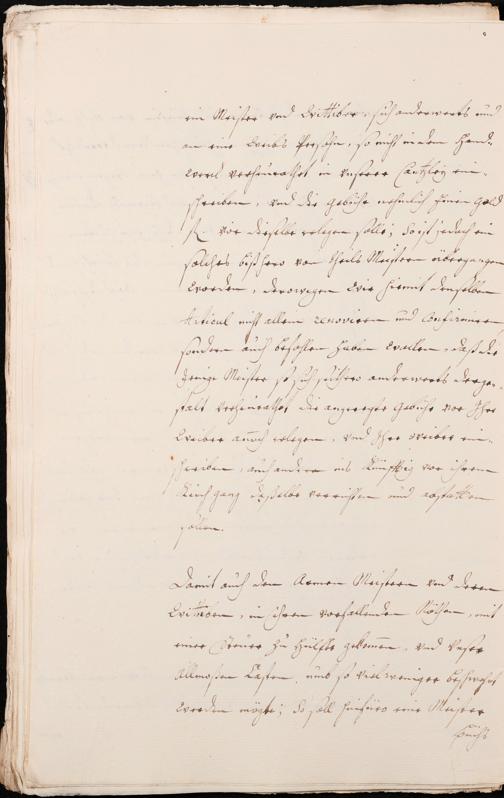 ein Meister und Wittiber, sich anderwerts und
an eine Weibs Persohn, so nicht in dem Handt
werck verheurathet in unserer Cantzley ein-
schreiben, und die gebühr nehmlich einen Gold
fl. vor dieselbe erlegen solle; So ist jedoch ein
solches bißhero von theils Meistern übergangen
worden, derowegen Wir hiemit denselben
Articul nicht allein renoviren und Confirmiren,
sondern auch befohlen haben wollen, daß die
jenige Meister so sich seithero anderwerts derge-
stalt verheurathet die angeregte gebühr vor Ihre
Weiber annoch erlegen, und Ihre Weiber ein-
schreiben, auch andere ins Künfftig vor ihrem
Kirchgang daßelbe verrichten und abstatten
sollen.
Damit auch den Armen Meistern und deren
Wittiben, in ihren vorfallenden Nöthen, mit
einer Steuer zu Hülffe gekommen, und Unser
Allmosen Casten, umb so viel weniger beschwehrt
werden mögte; So soll hinfüro eine Meister